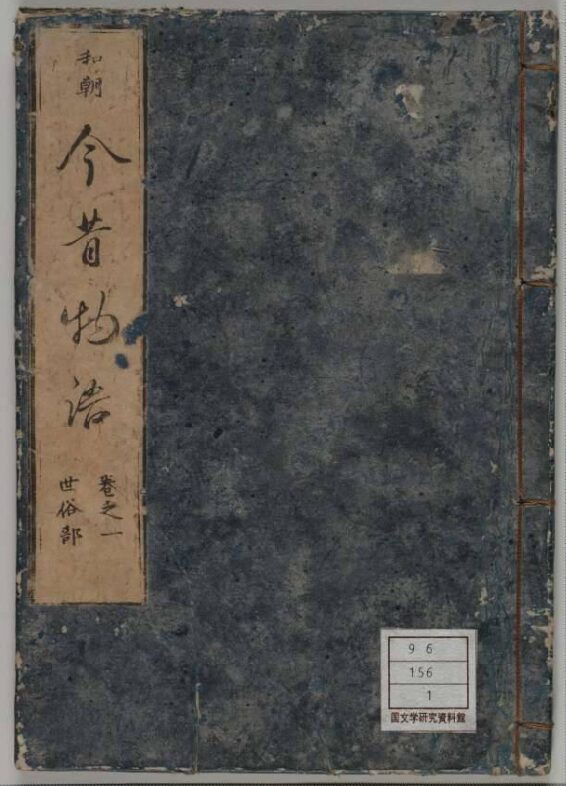 和朝
今昔物語
巻之一
世俗部
96
156
1
国文学研究資料館